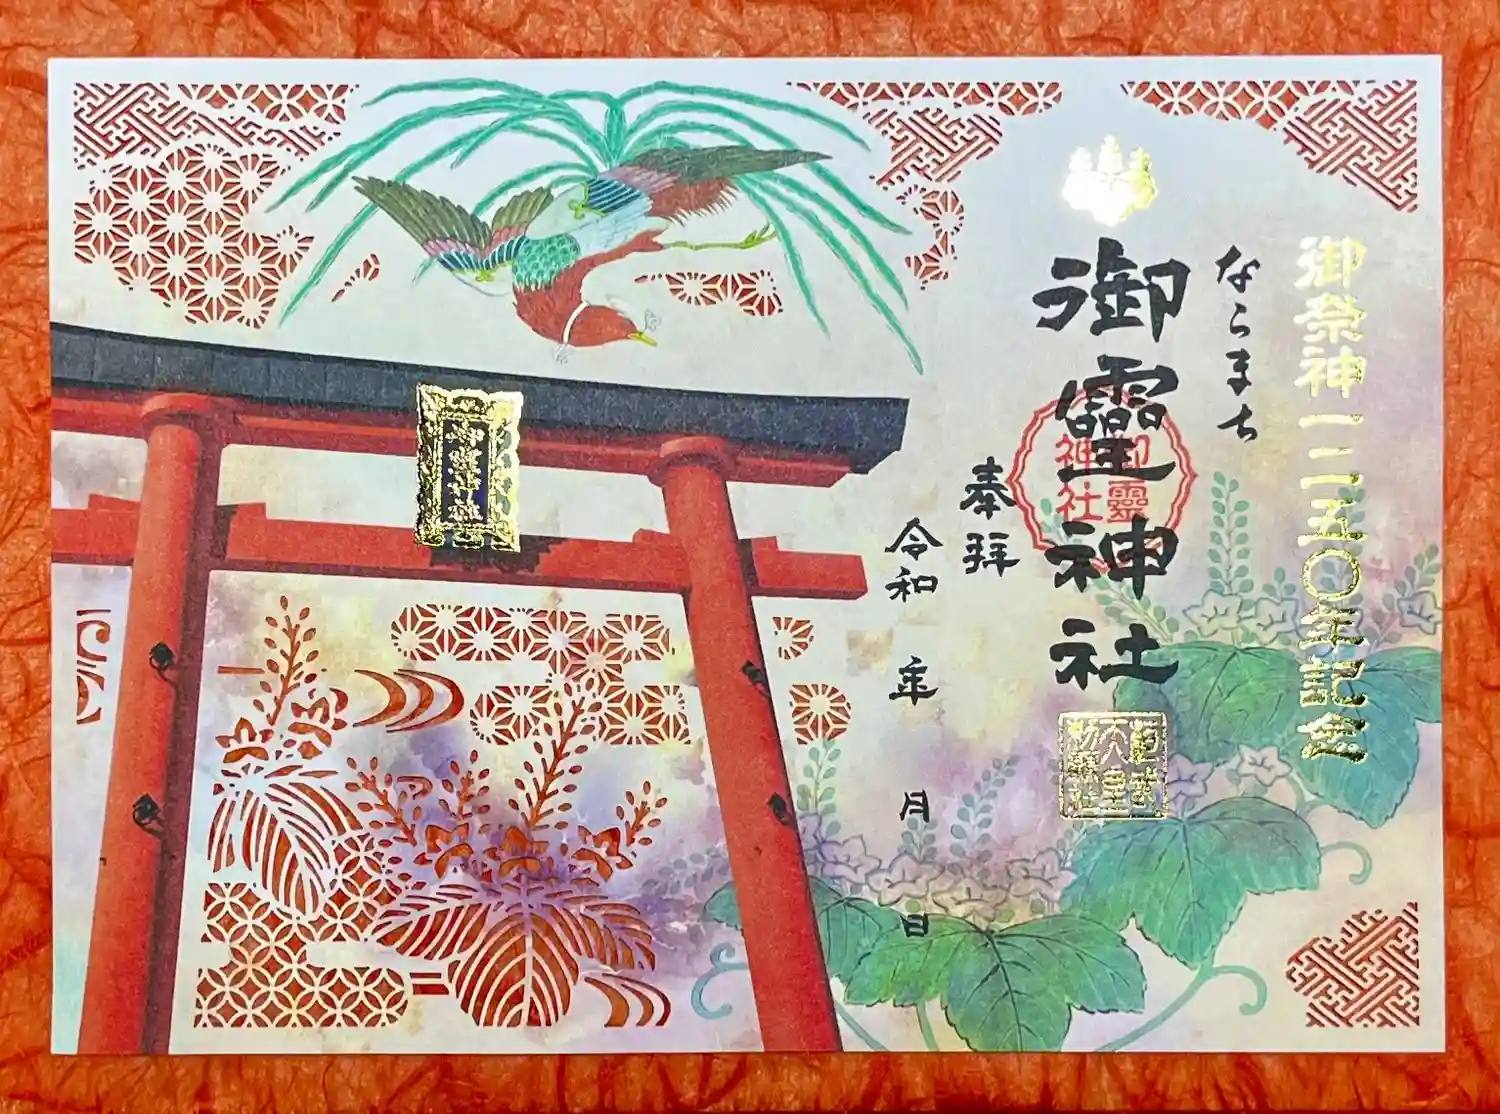 御祭神一二五〇年記念
ならまち
御靈神社
御靈神社
奉拝
令和 年 月 日